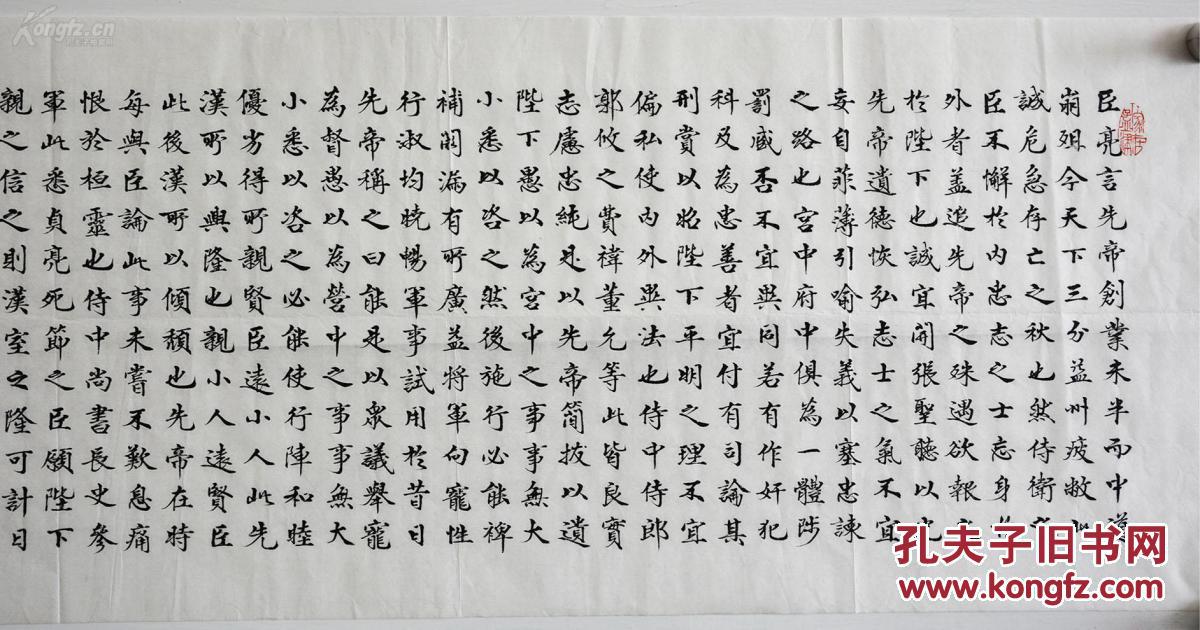 臣亮言先帝創業未半而中道
崩殂今天下三分益州疲敝此
誠危急存亡之秋也然侍衛之
臣不懈於內忠志之士忘身於
外者蓋追先帝之殊遇欲報之
於陛下也誠宜開張聖聽以光
先帝遺德恢弘志士之氣不宜
妄自菲薄引喻失義以塞忠諫
之路也宮中府中俱為一體陟
罰臧否不宜異同若有作奸犯
科及為忠善者宜付有司論其
刑賞以昭陛下平明之理不宜
偏私使內外異法也侍中侍郎
郭攸之費禕董允等此皆良實
志慮忠純是以先帝簡拔以遺
陛下愚以為宮中之事事無大
小悉以咨之然後施行必能裨
補闕漏有所廣益將軍向寵性
行淑均曉暢軍事試用於昔日
先帝稱之曰能是以眾議舉寵
為督愚以為營中之事事無大
小悉以咨之必能使行陣和睦
優劣得所親賢臣遠小人此先
漢所以興隆也親小人遠賢臣
此後漢所以傾頹也先帝在時
每與臣論此事未嘗不歎息痛
恨於桓靈也侍中尚書長史參
軍此悉貞亮死節之臣願陛下
親之信之則漢室之隆可計日
Kongfz.cn
孔夫子旧书网
www.kongfz.com